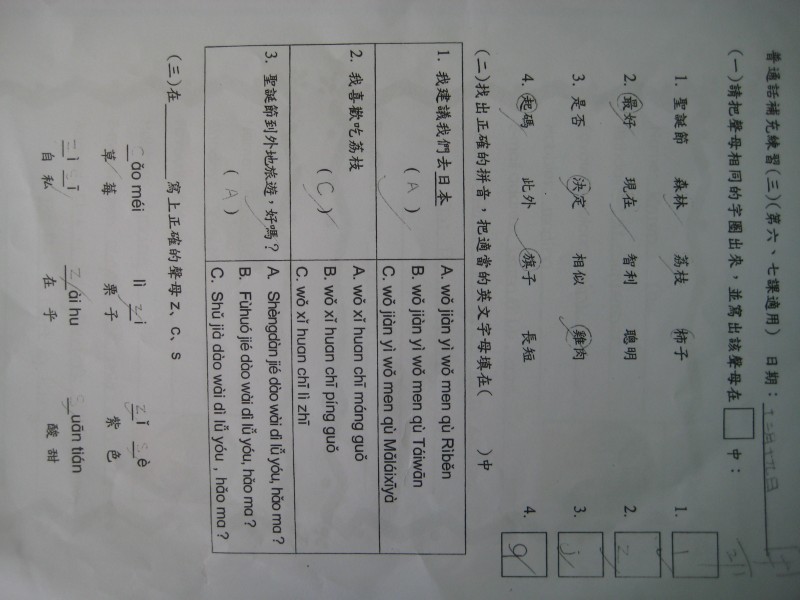 普通話補充練習(三)(第六、七課適用) 日期：
(一)請把聲母相同的字圈出來，並寫出該聲母在□中：
1. 聖誕節 森林 荔枝 柿子 1.
2. 最好 現在 智利 聰明 2. z
3. 是否 決定 相似 雞肉 3. j
4. 起碼 此外 旗子 長短 4. q
(二)找出正確的拼音，把適當的英文字母填在( )中
1. 我建議我們去日本
( A )
A. wǒ jiàn yì wǒ men qù Rìběn
B. wǒ jiàn yì wǒ men qù Táiwān
C. wǒ jiàn yì wǒ men qù Mǎláixīyà
2. 我喜歡吃荔枝
( C )
A. wǒ xǐ huan chī máng guǒ
B. wǒ xǐ huan chī píng guǒ
C. wǒ xǐ huan chī lì zhī
3. 聖誕節到外地旅遊，好嗎？
( A )
A. Shèngdàn jié dào wài dì lǚ yóu, hǎo ma？
B. Fùhuó jié dào wài dì lǚ yóu, hǎo ma？
C. Shǔ jià dào wài dì lǚ yóu , hǎo ma？
(三)在________寫上正確的聲母z、c、s
c ǎo méi lì z i z ǐ s è
草 莓 栗 子 紫 色
z ì s ī z ài hu s uān tián
自 私 在 乎 酸 甜